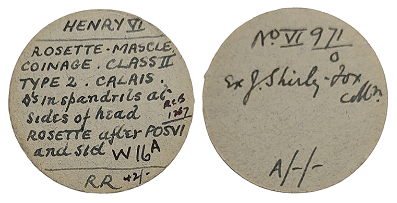 HENRY VI
ROSETTE-MASCLE
COINAGE. CLASS II
TYPE 2. CALAIS.
in spandrils at
sides of head
ROSETTE after POSVI
and sed W16A
RR 42/-
No VI 971
ex J. Shirley-Fox
colln.
A/-/-